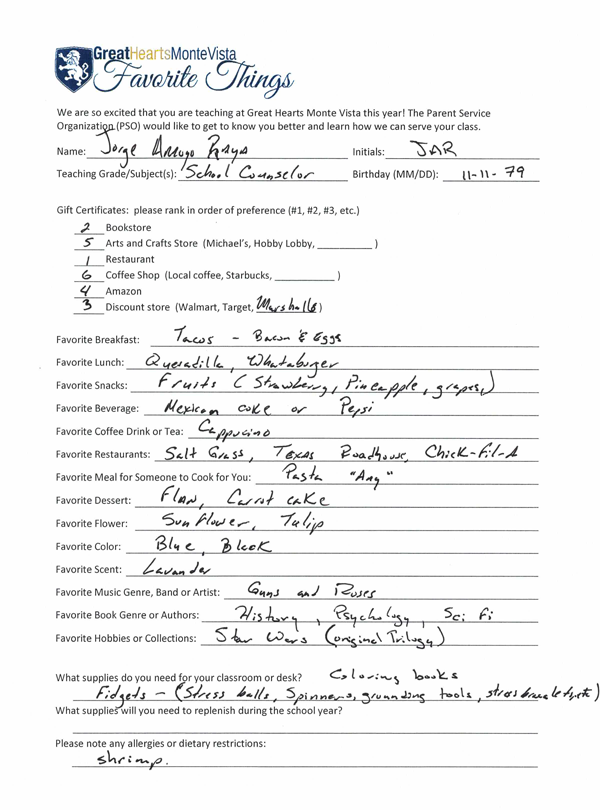 GreatHeartsMonteVista
Favorite Things
We are so excited that you are teaching at Great Hearts Monte Vista this year! The Parent Service
Organization (PSO) would like to get to know you better and learn how we can serve your class.
Name: Jorge Arroyo Raya Initials: JAR
Teaching Grade/Subject(s): School Counselor Birthday (MM/DD): 11-11-79
Gift Certificates: please rank in order of preference (#1, #2, #3, etc.)
2 Bookstore
5 Arts and Crafts Store (Michael's, Hobby Lobby, __________ )
1 Restaurant
6 Coffee Shop (Local coffee, Starbucks, ___________ )
4 Amazon
3 Discount store (Walmart, Target, Marshalls)
Favorite Breakfast: Tacos - Bacon & Eggs
Favorite Lunch: Quesadilla, Whataburger
Favorite Snacks: Fruits (Strawberry, Pineapple, grapes,)
Favorite Beverage: Mexican coke or Pepsi
Favorite Coffee Drink or Tea: Cappucino
Favorite Restaurants: Salt Grass, Texas Roadhouse, Chick-Fil-A
Favorite Meal for Someone to Cook for You: Pasta "Any"
Favorite Dessert: Flan, Carrot cake
Favorite Flower: Sunflower, Tulip
Favorite Color: Blue, Black
Favorite Scent: Lavander
Favorite Music Genre, Band or Artist: Guns and Roses
Favorite Book Genre or Authors: History, Psychology, Sci Fi
Favorite Hobbies or Collections: Star Wars (original Trilogy)
What supplies do you need for your classroom or desk? Coloring books
Fidgets - (Stress balls, Spinners, grounding tools, stress bracelets, etc)
What supplies will you need to replenish during the school year?
Please note any allergies or dietary restrictions:
shrimp.